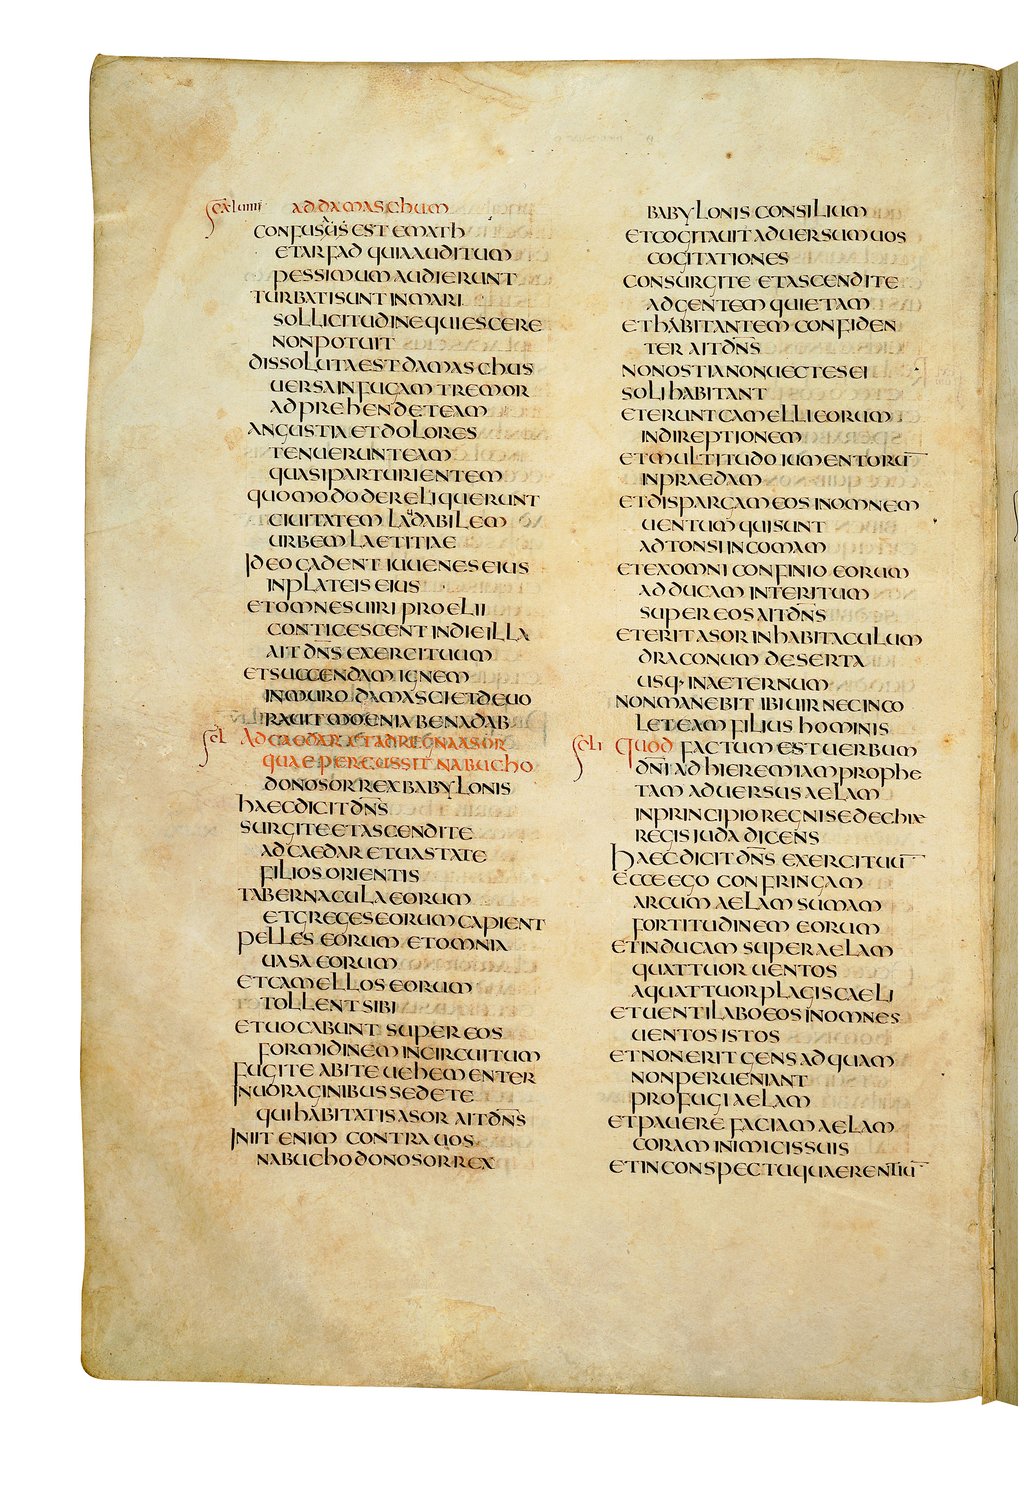 AD DAMASCHUM
CONFUSA EST EMATH
ET ARFAD QUIA AUDITUM
PESSIMUM AUDIERUNT
TURBATI SUNT IN MARI
SOLLICITUDINE QUIESCERE
NON POTUIT
DISSOLUTA EST DAMASCHUS
UERSA IN FUGAM TREMOR
ADPREHENDET EAM
ANGUSTIA ET DOLORES
TENUERUNT EAM
QUASI PARTURIENTEM
QUOMODO DERELIQUERUNT
CIUITATEM LAUDABILEM
URBEM LAETITIAE
IDEO CADENT IUUENES EIUS
IN PLATEIS EIUS
ET OMNES UIRI PROELII
CONTICESCENT IN DIE ILLA
AIT DN̄S EXERCITUUM
ET SUCCENDAM IGNEM
IN MURO DAMASCI ET DEUO
RAUIT MOENIA BENADAB
AD CAEDAR ET AD REGNA ASOR
QUAE PERCUSSIT NABUCHO
DONOSOR REX BABYLONIS
HAEC DICIT DN̄S
SURGITE ET ASCENDITE
AD CAEDAR ET UASTATE
FILIOS ORIENTIS
TABERNACULA EORUM
ET GREGES EORUM CAPIENT
PELLES EORUM ET OMNIA
UASA EORUM
ET CAMELLOS EORUM
TOLLENT SIBI
ET UOCABUNT SUPER EOS
FORMIDINEM IN CIRCUITUM
FUGITE ABITE UEHEMENTER
IN UORAGINIBUS SEDETE
QUI HABITATIS ASOR AIT DN̄S
INIIT ENIM CONTRA UOS
NABUCHODONOSOR REX
BABYLONIS CONSILIUM
ET COGITAUIT ADUERSUM UOS
COGITATIONES
CONSURGITE ET ASCENDITE
AD GENTEM QUIETAM
ET HABITANTEM CONFIDEN
TER AIT DN̄S
NON OSTIA NON UECTES EI
SOLI HABITANT
ET ERUNT CAMELLI EORUM
IN DIREPTIONEM
ET MULTITUDO IUMENTORŪ
IN PRAEDAM
ET DISPARGAM EOS IN OMNEM
UENTUM QUI SUNT
ADTONSI IN COMAM
ET EX OMNI CONFINIO EORUM
ADDUCAM INTERITUM
SUPER EOS AIT DN̄S
ET ERIT ASOR IN HABITACULUM
DRACONUM DESERTA
USQ· IN AETERNUM
NON MANEBIT IBI UIR NEC INCO
LET EAM FILIUS HOMINIS
QUOD FACTUM EST UERBUM
DN̄I AD HIEREMIAM PROPHE
TAM ADUERSUS AELAM
IN PRINCIPIO REGNI SEDECHIAE
REGIS IUDA DICENS
HAEC DICIT DN̄S EXERCITUŪ
ECCE EGO CONFRINGAM
ARCUM AELAM SUMAM
FORTITUDINEM EORUM
ET INDUCAM SUPER AELAM
QUATTUOR UENTOS
A QUATTUOR PLAGIS CAELI
ET UENTILABO EOS IN OMNES
UENTOS ISTOS
ET NON ERIT GENS AD QUAM
NON PERUENIANT
PROFUGI AELAM
ET PAUERE FACIAM AELAM
CORAM INIMICIS SUIS
ET IN CONSPECTU QUAERENTIŪ